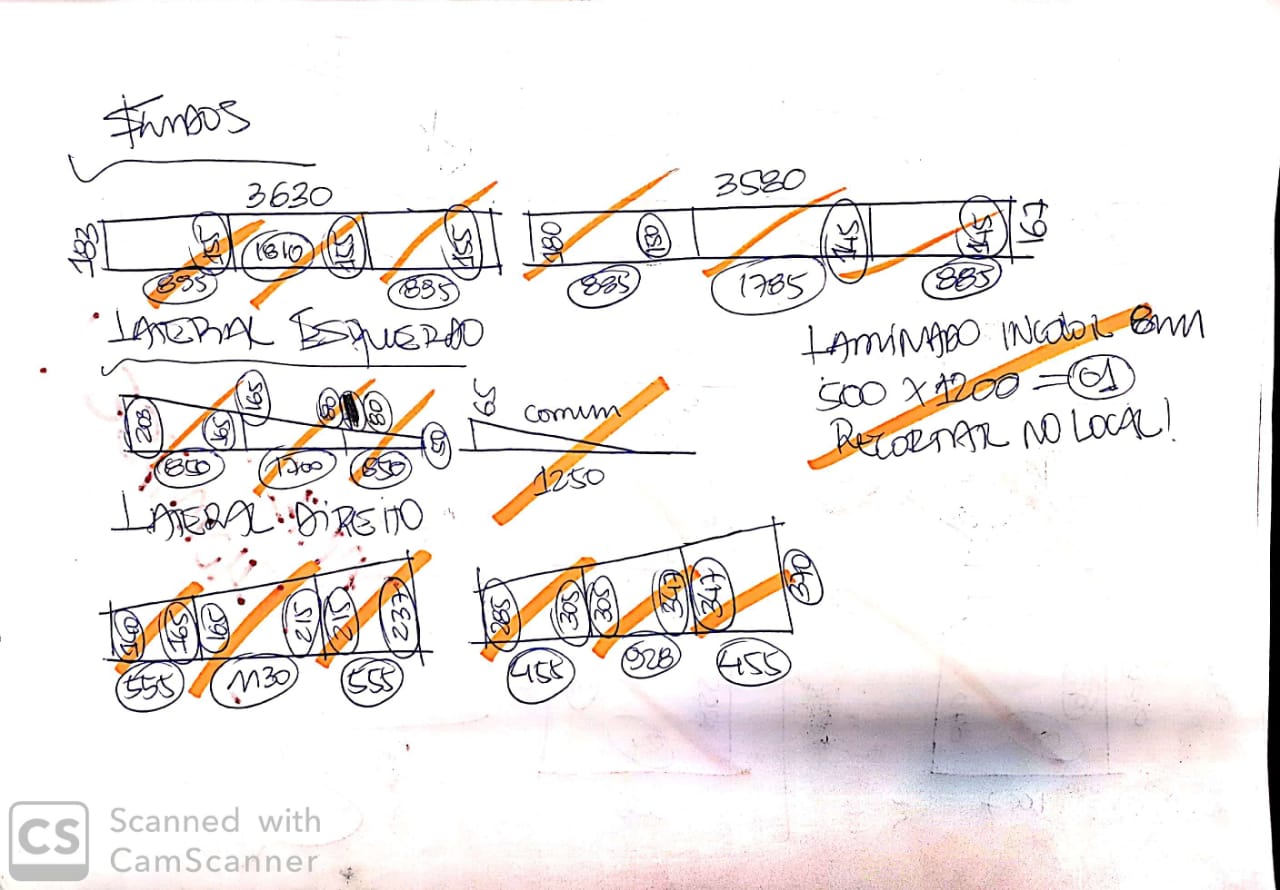 FUNDOS
3630 3580
183 155 1810 155 155 180 130 145 145 167
895 895 885 1785 885
LATERAL ESQUERDO
LAMINADO INCOLOR 8mm
500 X 1200 = 01
RECORTAR NO LOCAL!
208 165 165 80 80 50 65 comum
850 1700 850 1250
LATERAL DIREITO
140 165 165 215 215 237 285 305 305 347 347 370
555 1130 555 455 928 455
CS Scanned with
CamScanner